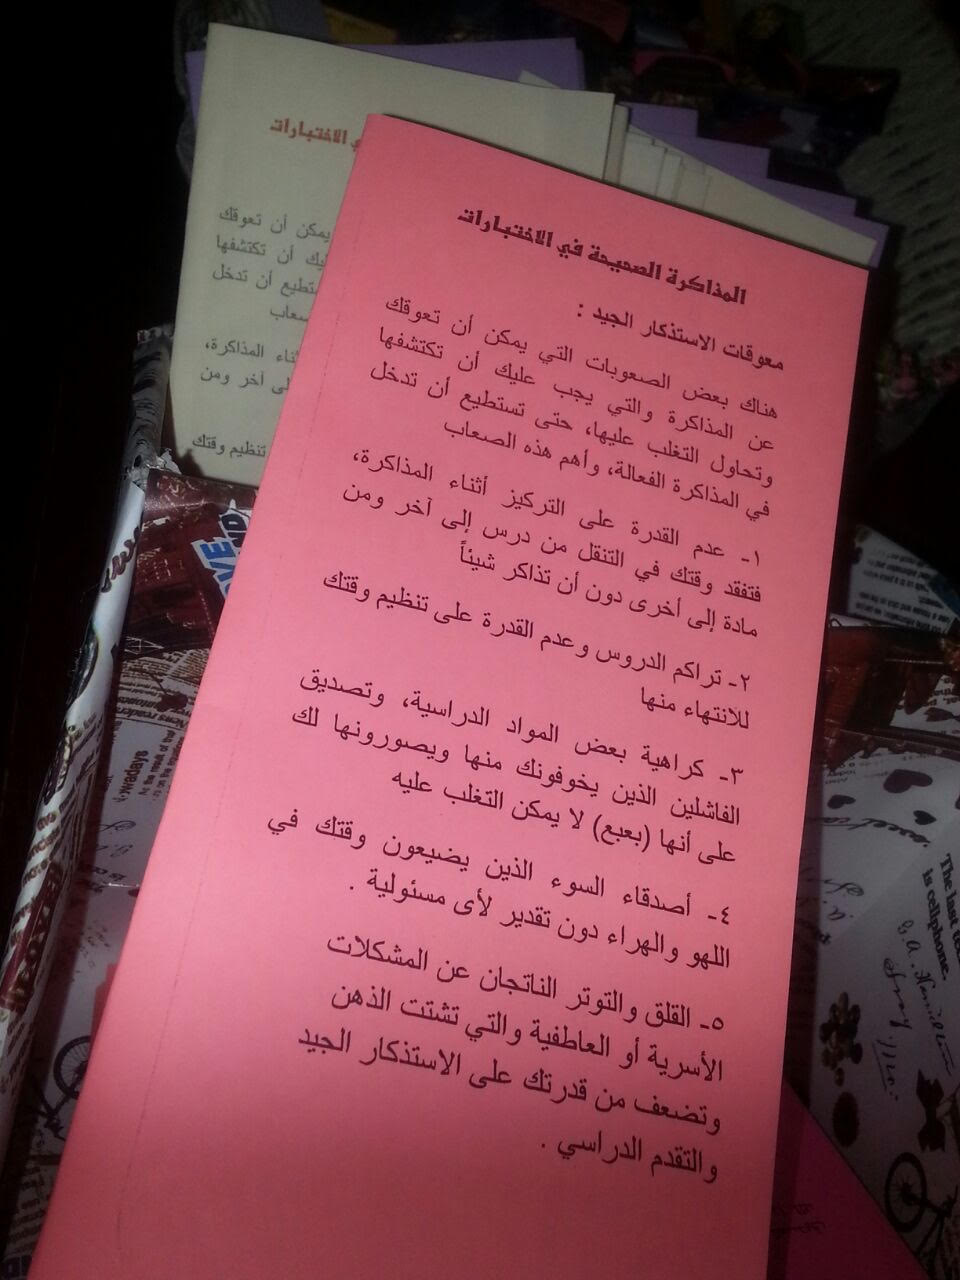 المذاكرة الصحيحة في الاختبارات
معوقات الاستذكار الجيد :
هناك بعض الصعوبات التي يمكن أن تعوقك
عن المذاكرة والتي يجب عليك أن تكتشفها
وتحاول التغلب عليها، حتى تستطيع أن تدخل
في المذاكرة الفعالة، وأهم هذه الصعاب
١- عدم القدرة على التركيز أثناء المذاكرة،
فتفقد وقتك في التنقل من درس إلى آخر ومن
مادة إلى أخرى دون أن تذاكر شيئاً
٢- تراكم الدروس وعدم القدرة على تنظيم وقتك
للانتهاء منها
٣- كراهية بعض المواد الدراسية، وتصديق
الفاشلين الذين يخوفونك منها ويصورونها لك
على أنها (بعبع) لا يمكن التغلب عليه
٤- أصدقاء السوء الذين يضيعون وقتك في
اللهو والهراء دون تقدير لأى مسئولية .
٥- القلق والتوتر الناتجان عن المشكلات
الأسرية أو العاطفية والتي تشتت الذهن
وتضعف من قدرتك على الاستذكار الجيد
والتقدم الدراسي .
ي الاختبارات
يمكن أن تعوقك
ليك أن تكتشفها
ستطيع أن تدخل
صعاب
ثناء المذاكرة،
لى آخر ومن
تنظيم وقتك
The last
is cellphone.